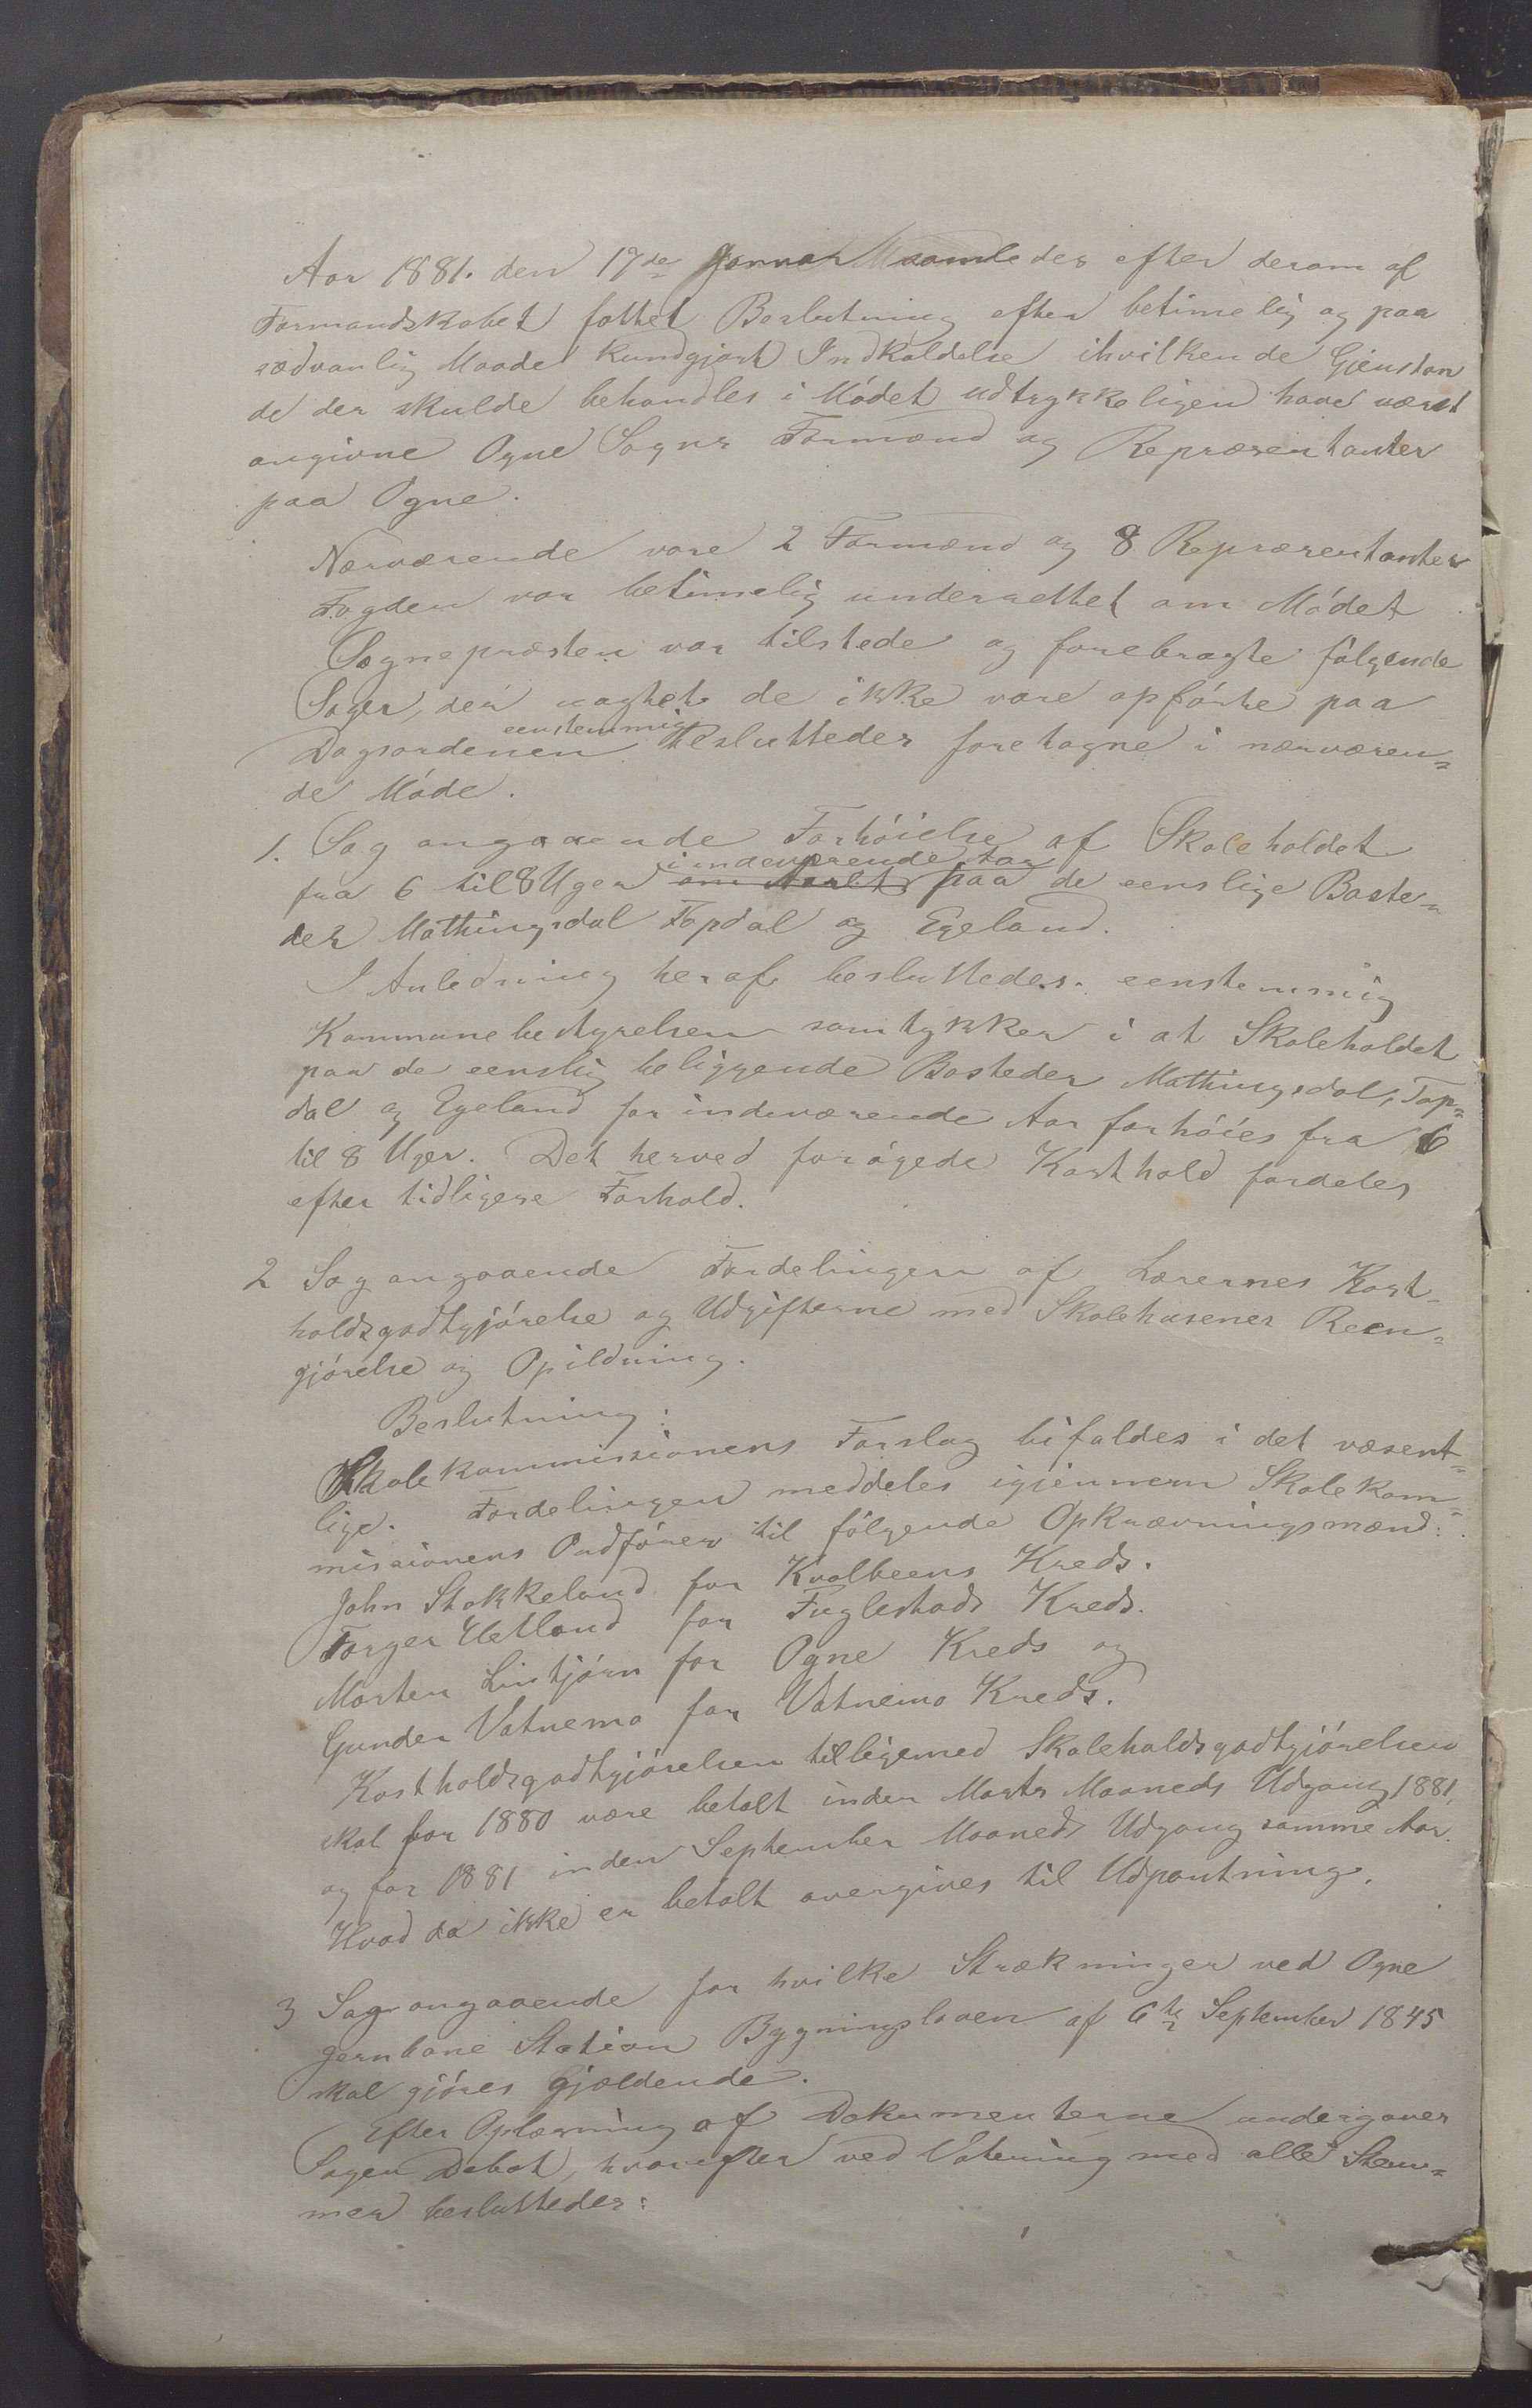 Aar 1881. den 17de Januar samledes efter derom af
Formandskabet fattet Beslutning efter betimelig og paa
sædvanlig Maade kundgjort Indkaldelse ihvilken de Gjenstan
de der skulde behandles i Mødet udtrykkeligen have været
angivne Ogne Sogns Formænd og Repræsentanter
paa Ogne.
Nærværende vare 2 Formænd og 8 Repræsentanter
Fogden var betimelig underrettet om Mødet
Sognepræsten var tilstede og forebragte følgende
Sager, der uagtet de ikke vare opførte paa
Dagsordenen eenstemmig besluttedes foretagne i nærværen=
de Møde.
1. Sag angaaende Forhøielse af Skoleholdet
fra 6 til 8 Uger indeværende Aar paa de eenslige Boste=
der Mathingsdal Tapdal og Egeland.
I Anledning heraf besluttedes. eenstemmig
Kommunebestyrelsen samtykker i at Skoleholdet
paa de eenslig beliggende Bosteder Mathingsdal, Tap=
dal og Egeland for indeværende Aar forhøies fra 6
til 8 Uger. Det herved forøgede Kosthold fordeles
efter tidligere Forhold.
2 Sag angaaende Fordelingen af Lærernes Kost-
holdsgodtgjørelse og Udgifterne med Skolehusenes Reen=
gjørelse og Opildning.
Beslutning:
Skolekommissionens Forslag bifaldes i det væsent=
lige. Fordelingen meddeles igjennem Skolekom=
missionens Ordfører til følgende Opkrævningsmænd:
John Stokkeland for Kvalbeens Kreds.
Torger Hetland for Fuglestads Kreds.
Morten Lintjørn for Ogne Kreds og
Gunder Vatnemo for Vatnemo Kreds.
Kostholdsgodtgjørelsen tilligemed Skoleholdsgodtgjørelsen
skal for 1880 være betalt inden Marts Maaneds Udgang 1881,
og for 1881 inden September Maaneds Udgang samme Aar.
Hvad da ikke er betalt overgives til Udpantning.
3 Sag angaaende for hvilke Strækninger ved Ogne
Jernbane Station Bygningsloven af 6te September 1845
skal gjøres gjældende.
Efter Oplæsning af Dokumenterne undergaves
Sagen Debat, hvorefter ved Votering med alle Stem=
mer besluttedes: